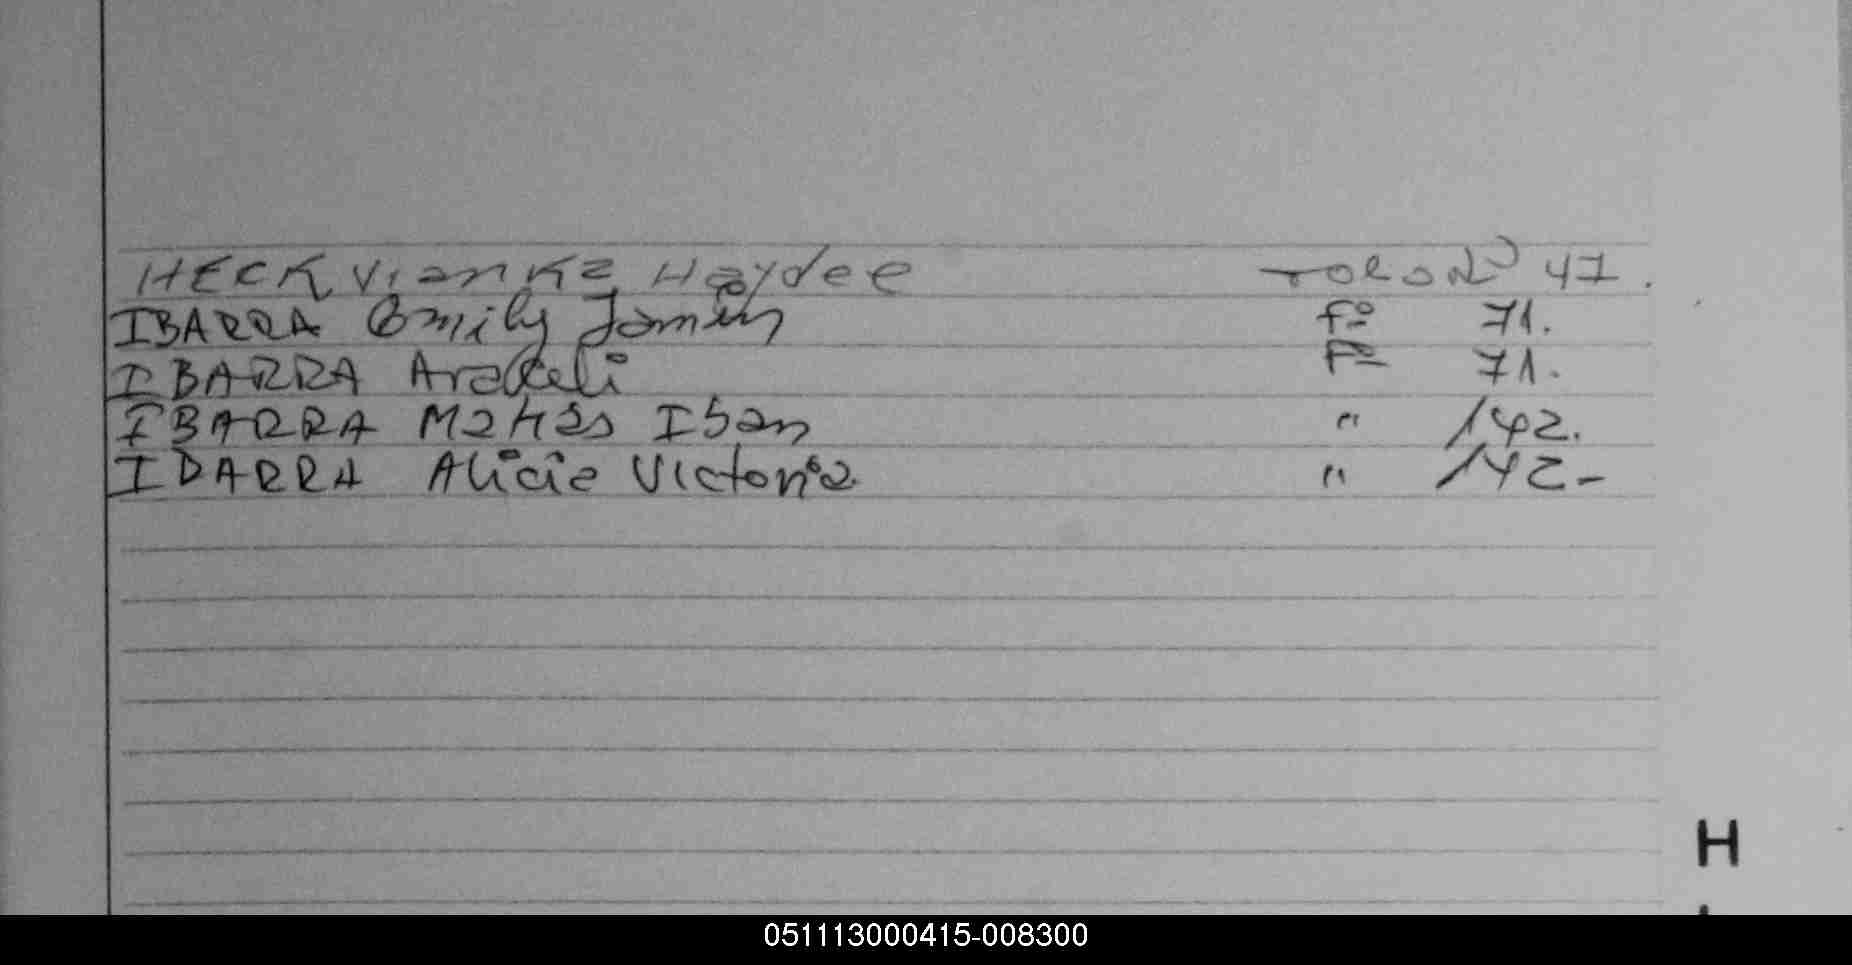 HECK Vianka Haydee Folio Nº 47.
IBARRA Emily Jamin Fº 71.
IBARRA Araceli Fº 71.
IBARRA Matías Iban " 142.
IBARRA Alicia Victoria " 142-
H
051113000415-008300